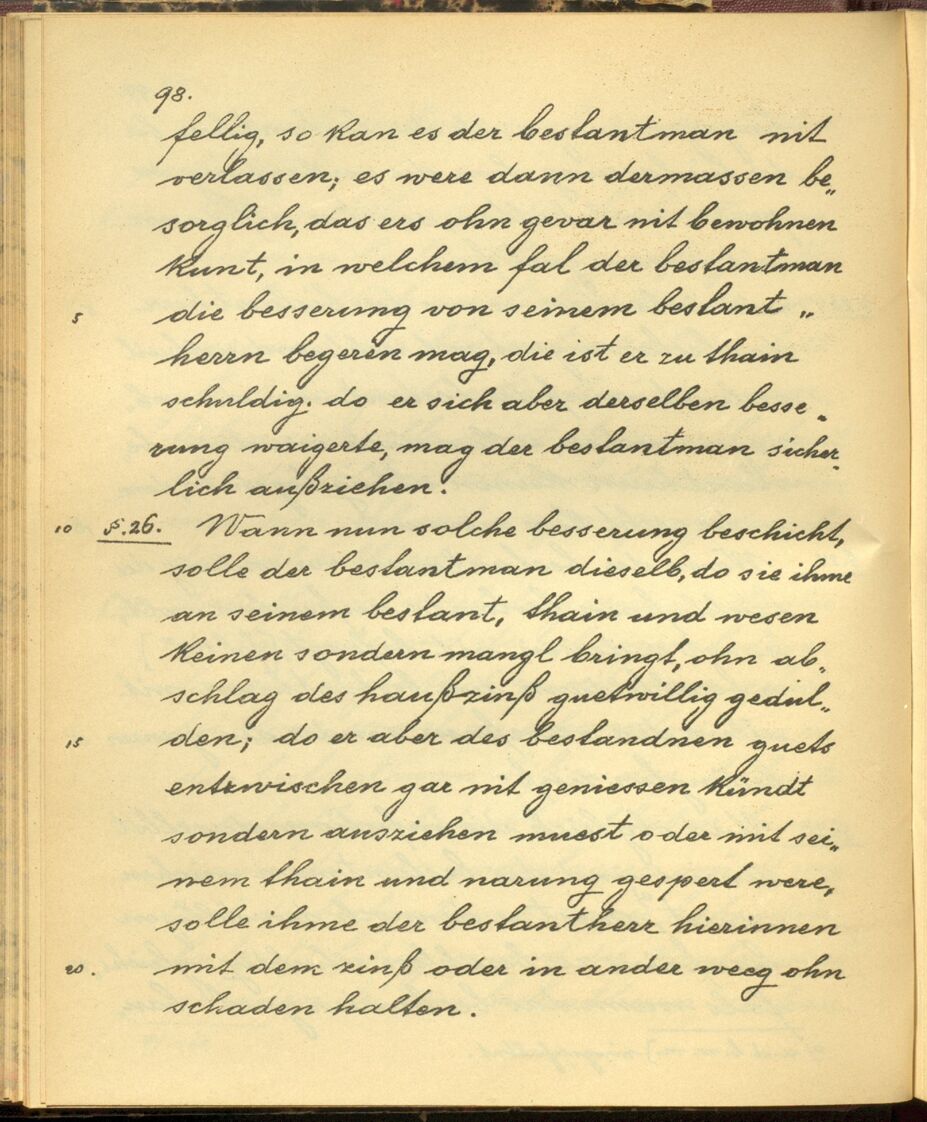 98.
fellig, so kan es der bestantman nit
verlassen; es were dann dermassen be„
sorglich, das ers ohn gevar nit bewohnen
kunt, in welchem fal der bestantman
5 die besserung von seinem bestant „
herrn begeren mag, die ist er zu thain
schuldig. do er sich aber derselben besse„
rung waigerte, mag der bestantman sicher„
lich außziehen.
10 §.26. Wann nun solche besserung beschicht,
solle der bestantman dieselb, do sie ihme
an seinem bestant, thain und wesen
keinen sondern mangl bringt, ohn ab„
schlag des haußzinß guetwillig gedul„
15 den; do er aber des bestandnen guets
entzwischen gar nit geniessen kündt
sondern ausziehen muest oder mit sei„
nem thain und narung gespert were,
solle ihme der bestantherr hierinnen
20. mit dem zinß oder in ander weeg ohn
schaden halten.